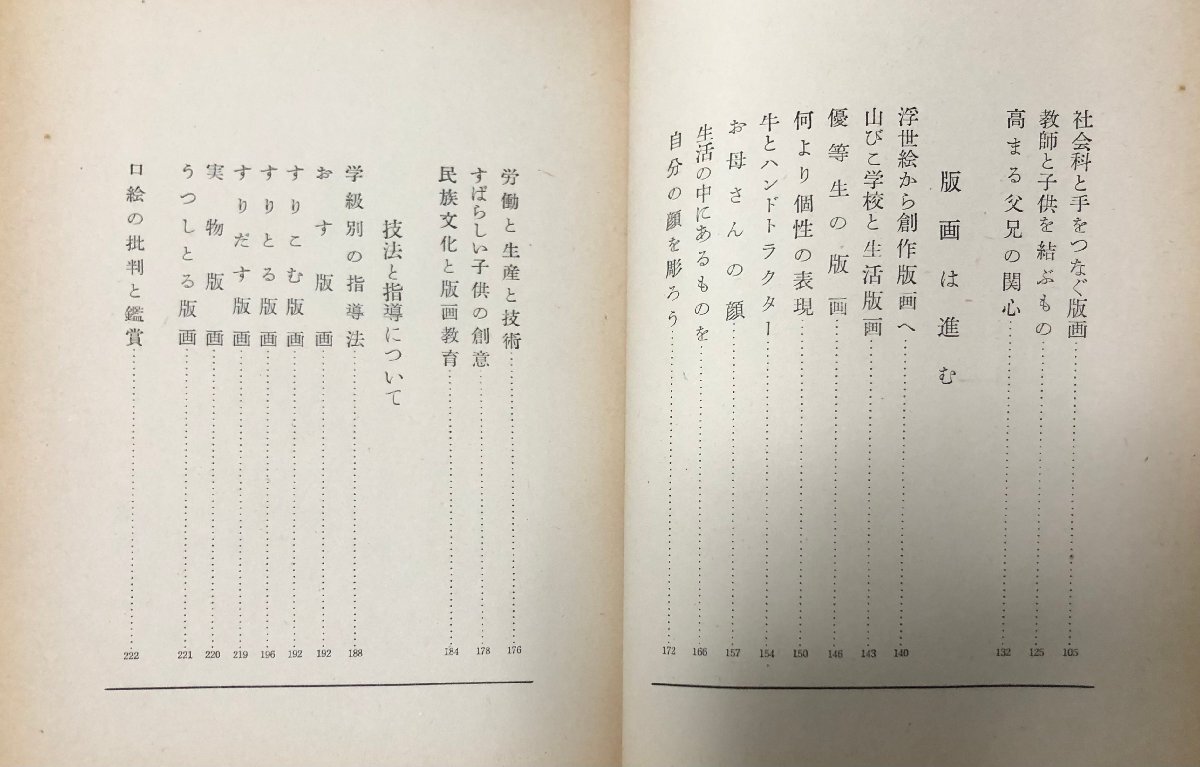 社会科と手をつなぐ版画……105
教師と子供を結ぶもの……125
高まる父兄の関心……132
版画は進む
浮世絵から創作版画へ……140
山びこ学校と生活版画……143
優等生の版画……146
何より個性の表現……150
牛とハンドトラクター……154
お母さんの顔……157
生活の中にあるものを……166
自分の顔を彫ろう……172
労働と生産と技術……176
すばらしい子供の創意……178
民族文化と版画教育……184
技法と指導について
学級別の指導法……188
おす版画……192
すりこむ版画……192
すりとる版画……196
すりだす版画……219
実物版画……220
うつしとる版画……221
口絵の批判と鑑賞……222